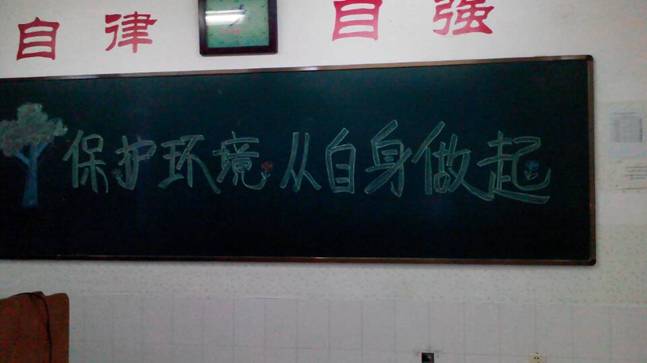 自律 自强
保护环境从自身做起